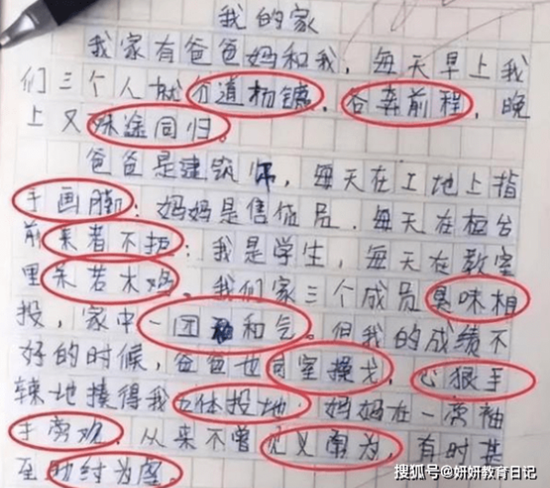 我的家
我家有爸爸妈和我，每天早上我
们三个人就分道扬镳，各奔前程，晚
上又殊途同归。
爸爸是建筑师，每天在工地上指
手画脚；妈妈是售货员，每天在柜台
前来者不拒；我是学生，每天在教室
里呆若木鸡。我们家三个成员臭味相
投，家中一团和气。但我的成绩不
好的时候，爸爸也同室操戈，心狠手
辣地揍得我五体投地。妈妈在一旁袖
手旁观，从来不曾见义勇为，有时甚
至助纣为虐。
搜狐号@妍妍教育日记